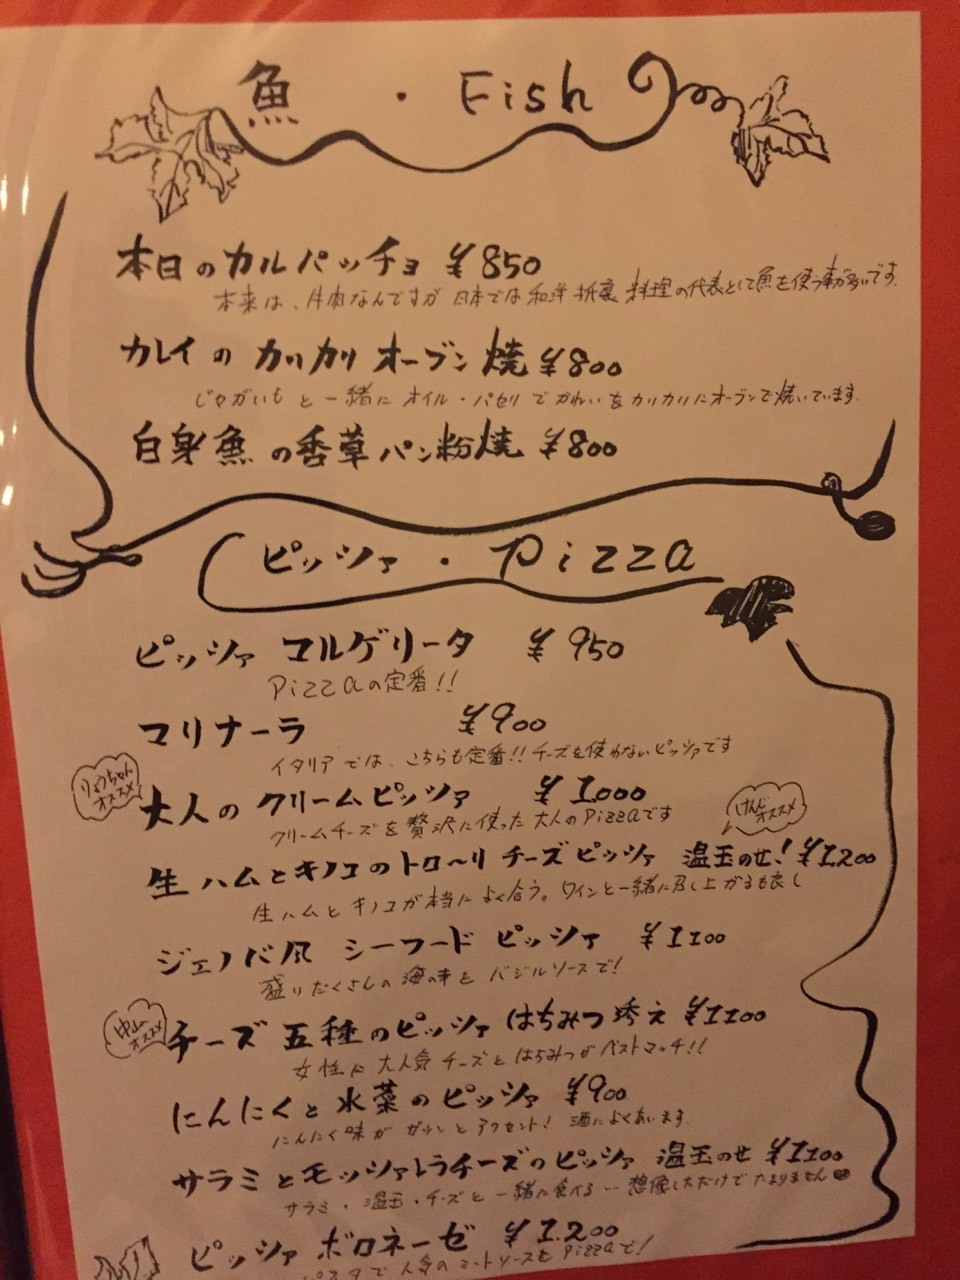 魚 ・ Fish
本日のカルパッチョ ¥850
本来は、牛肉なんですが日本では和洋折衷料理の代表として魚を使う事が多いです。
カレイのカリカリオーブン焼 ¥800
じゃがいもと一緒にオイル・パセリでかれいをカリカリにオーブンで焼いています。
白身魚の香草パン粉焼 ¥800
ピッツァ ・ Pizza
ピッツァ マルゲリータ ¥950
Pizzaの定番!!
マリナーラ ¥900
イタリアでは、こちらも定番!!チーズを使わないピッツァです
りょうちゃん
オススメ
大人のクリームピッツァ ¥1,000
クリームチーズを贅沢に使った大人のPizzaです
オススメ
生ハムとキノコのトロ〜リチーズピッツァ 温玉のせ! ¥1,200
生ハムとキノコが本当によく合う。ワインと一緒に召し上がるも良し
ジェノバ風 シーフードピッツァ ¥1,100
盛りだくさんの海の幸とバジルソースで!
中山
オススメ
チーズ五種のピッツァはちみつ添え ¥1,100
女性に大人気チーズとはちみつがベストマッチ!!
にんにくと水菜のピッツァ ¥900
にんにく味がガツンとアクセント!酒によくあいます
サラミとモッツァレラチーズのピッツァ 温玉のせ ¥1,100
サラミ・温玉・チーズと一緒に食べる…想像しただけでたまりません♥
ピッツァ ボロネーゼ ¥1,200
パスタで人気のミートソースをPizzaで!